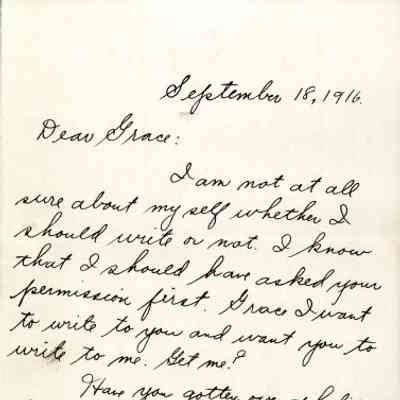 September 18, 1916.
Dear Grace:
I am not at all
sure about my self whether I
should write or not. I know
that I should have asked your
permission first. Grace I want
to write to you and want you to
write to me. Get me?
Have you gotten over